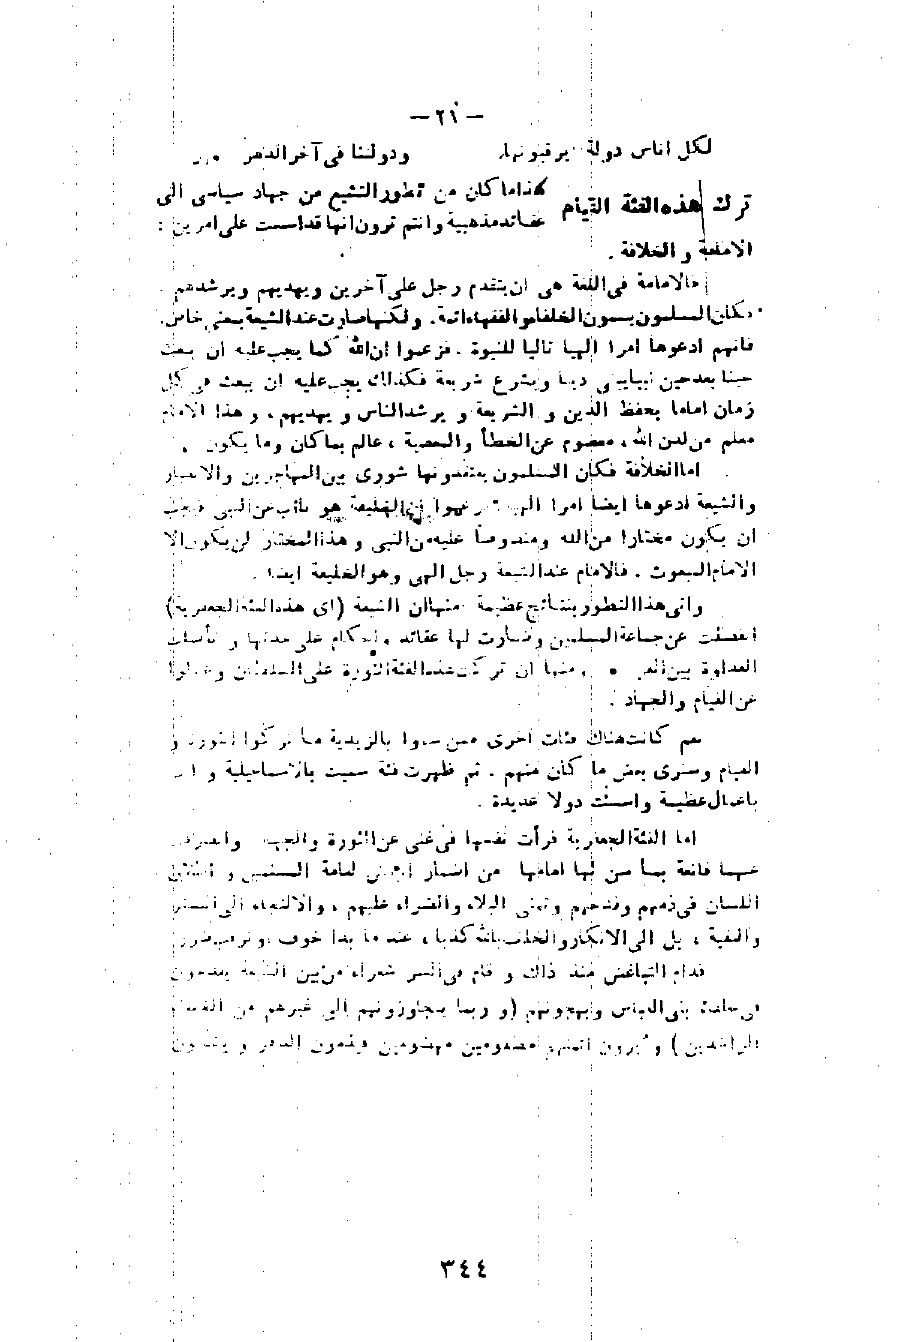 — ٢١ —
لكل اناس دولة يرقبونها ودولتنا فى آخر الدهر
ترك هذه الفئة القيام
هذا ما كان من تطور التشيع من جهاد سياسى الى
عقائد مذهبية وانتم ترون انها قد اسست على امرين :
الامامة و الخلافة .
فالامامة فى اللغة هى ان يتقدم رجل على آخرين ويهديهم ويرشدهم .
فكان المسلمون يسمون الخلفاء والفقهاء ائمة . ولكنها صارت عند الشيعة بمعنى خاص .
فانهم ادعوها امرا الهيا تاليا للنبوة . فزعموا ان الله كما يجب عليه ان يبعث
حينا بعد حين نبيا يبنى دينا ويشرع شريعة فكذلك يجب عليه ان يبعث فى كل
زمان اماما يحفظ الدين و الشريعة و يرشد الناس و يهديهم ، و هذا الامام
معلم من لدن الله ، معصوم عن الخطأ والمعصية ، عالم بما كان وما يكون .
اما الخلافة فكان المسلمون يعتقدونها شورى بين المهاجرين والانصار
والشيعة ادعوها ايضا امرا الهيا زعموا ان الخليفة هو نائب عن النبى فيجب
ان يكون مختارا من الله ومنصوصا عليه من النبى و هذا المختار لن يكون الا
الامام المبعوث . فالامام عند الشيعة رجل الهى وهو الخليفة ايضا .
واتى هذا التطور بنتائج عظيمة منها ان الشيعة (اى هذه الفئة الجعفرية)
انفصلت عن جماعة المسلمين وصارت لها عقائد و احكام على حدتها و تأصلت
العداوة بين ، منها ان تركت هذه الفئة الثورة على السلطان وعدلوا
عن القيام والجهاد .
نعم كانت هناك فئات اخرى ممن سموا بالزيدية ما تركوا الثورة و
القيام وسنرى بعض ما كان منهم . ثم ظهرت فئة سميت بالاسماعيلية و
باعمال عظيمة واسست دولا عديدة .
اما الفئة الجعفرية فرأت نفسها فى غنى عن الثورة والجهاد وانصرفت
عنها قانعة بما سن لها امامها من اضمار البغض لعامة المسلمين و اطلاق
اللسان فى ذمهم وقدحهم وتمنى البلاء والضراء عليهم ، والالتجاء الى التستر
والتقية ، بل الى الانكار والحلف بالله كذبا ، عند ما بدا خوف
فدام التباغض منذ ذاك و قام فى السر شعراء من بين الشيعة يقدحون
فى خلفاء بنى العباس ويهجونهم (و ربما يتجاوزونهم الى غيرهم من الخلفاء
الراشدين) و يرون ائمتهم مظلومين مهضومين فيذمون الدهر و
٣٤٤